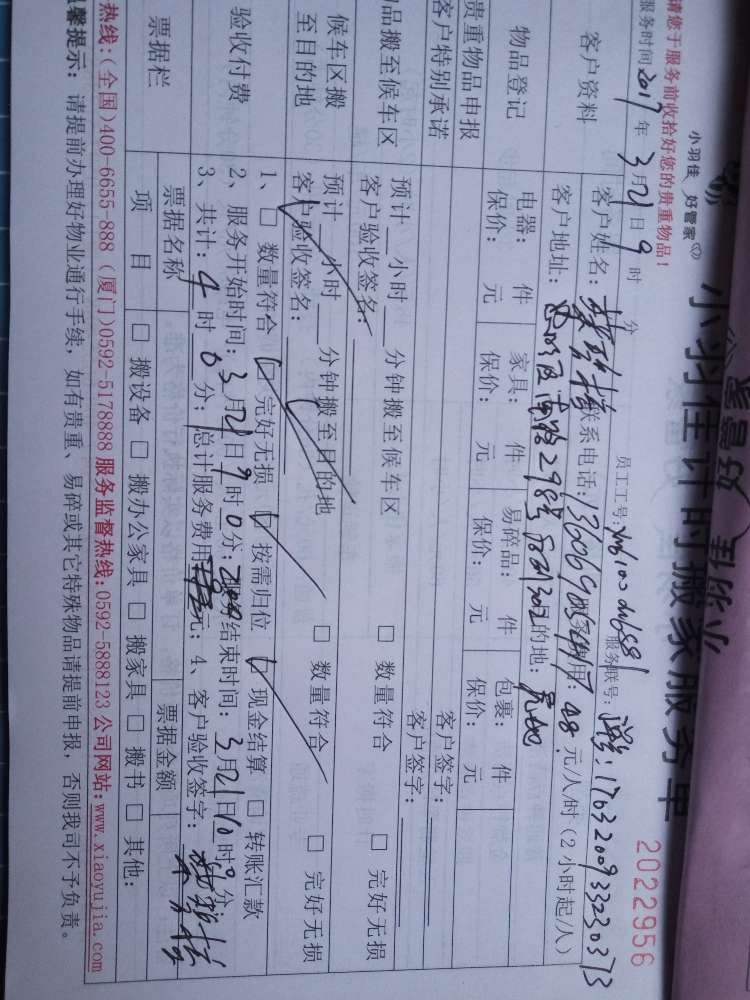 请您于服务前收拾好您的贵重物品！
小羽佳 好管家
小羽佳计时搬家服务单
2022956
服务时间 2017年3月21日9时 分
员工工号:
服务联号:
客户资料
客户姓名: 联系电话: 服务费用: 48 元/人/时(2小时起/人)
客户地址: 目的地:
物品登记
电器: 件 家具: 件 易碎品: 件 包裹: 件
保价: 元 保价: 元 保价: 元 保价: 元
贵重物品申报 客户签字:
客户特别承诺 客户签字:
品搬至候车区
预计 小时 分钟搬至候车区 □ 数量符合 □ 完好无损
客户验收签名:
候车区搬至目的地
预计 小时 分钟搬至目的地 □ 数量符合 □ 完好无损
客户验收签名:
验收付费
1、□ 数量符合 □ 完好无损 □ 按需归位 □ 现金结算 □ 转账汇款
2、服务开始时间: 3月21日9时0分; 服务结束时间: 3月21日10时0分;
3、共计: 4时0分; 总计服务费用 元; 4、客户验收签字:
票据栏
票据名称 票据金额
项 目 □ 搬设备 □ 搬办公家具 □ 搬家具 □ 搬书 □ 其他:
热线:(全国)400-6655-888 (厦门)0592-5178888 服务监督热线:0592-5888123 公司网站:www.xiaoyujia.com
馨提示: 请提前办理好物业通行手续，如有贵重、易碎或其它特殊物品请提前申报，否则我司不予负责。